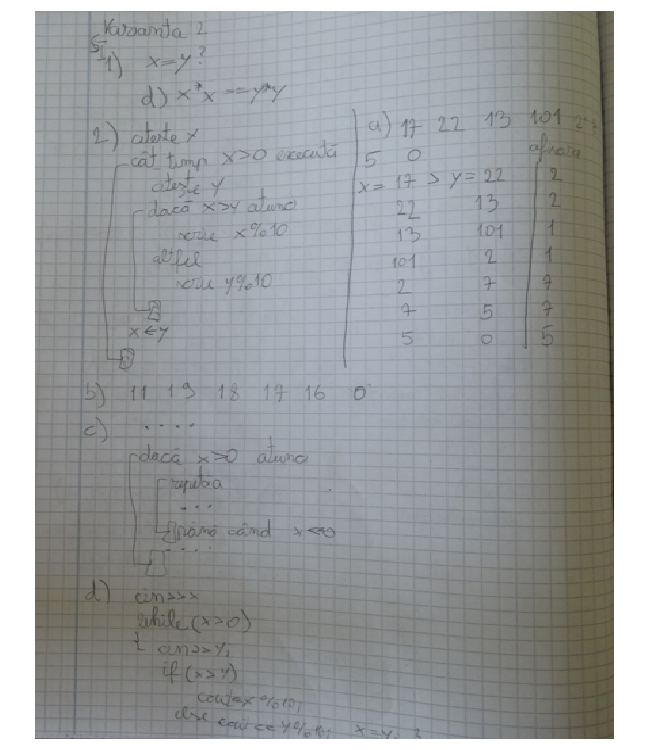 Varianta 2
SI
1) x=y?
d) x*x==y*y
2) citește x
cât timp x>0 execută
citește y
dacă x>y atunci
scrie x%10
altfel
scrie y%10
x←y
a) 17 22 13 101 2 7
5 0 afișează
x= 17 > y= 22 2
22 13 2
13 101 1
101 2 1
2 7 7
7 5 7
5 0 5
b) 11 19 18 17 16 0
c) ....
dacă x>0 atunci
repetă
...
până când x<=0
....
d) cin>>x
while(x>0)
{ cin>>y;
if(x>y)
cout<<x%10;
else cout<<y%10; x=y;